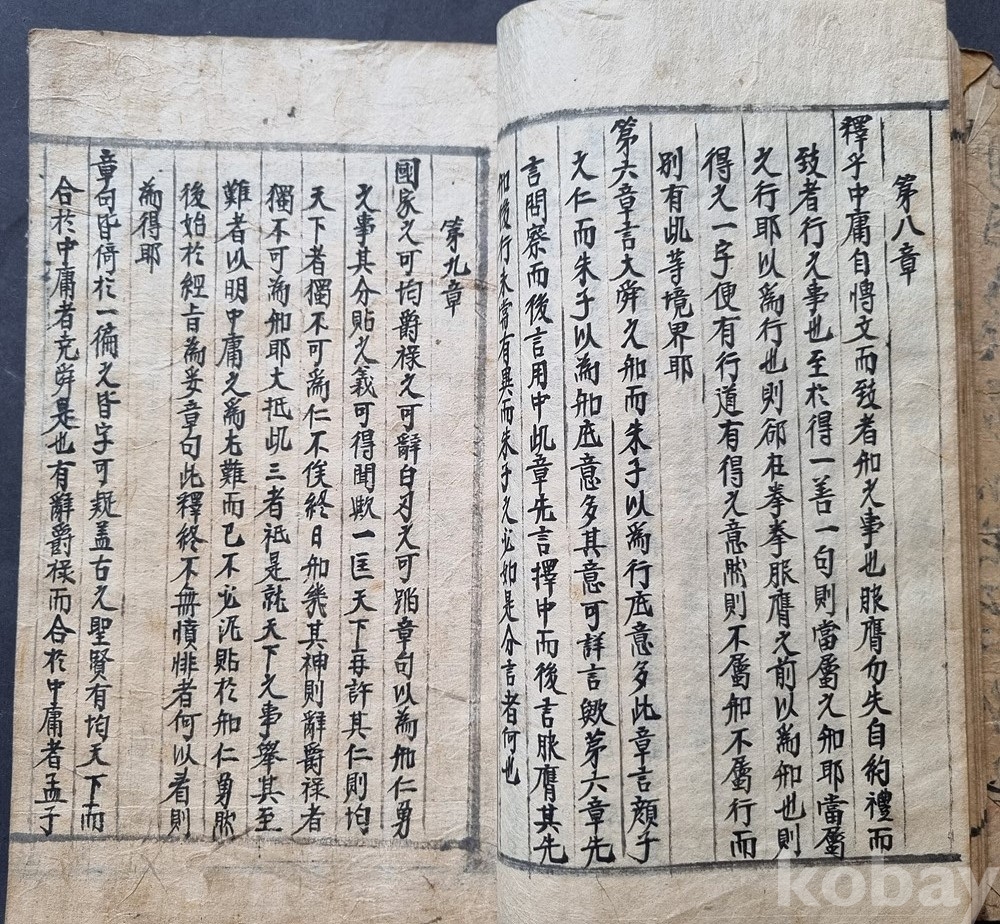 第八章
釋乎中庸自博文而致者知之事也服膺勿失自約禮而
致者行之事也至於得一善一句則當屬之知耶當屬
之行耶以爲行也則卻在拳拳服膺之前以爲知也則
得之一字便有行道有得之意然則不屬知不屬行而
別有此等境界耶
第六章言大舜之知而朱子以爲行底意多此章言顔子
之仁而朱子以爲知底意多其意可詳言歟第六章先
言問察而後言用中此章先言擇中而後言服膺其先
知後行未嘗有異而朱子之必如是分言者何也
第九章
國家之可均爵祿之可辭白刃之可蹈章句以爲知仁勇
之事其分貼之義可得聞歟一匡天下再許其仁則均
天下者獨不可爲仁不俟終日知幾其神則辭爵祿者
獨不可爲知耶大抵此三者祗是就天下之事擧其至
難者以明中庸之爲尤難而已不必泥貼於知仁勇然
後始於經旨爲妥章句此釋終不無憤悱者何以看則
爲得耶
章句皆倚於一偏之皆字可疑盖古之聖賢有均天下而
合於中庸者堯舜是也有辭爵祿而合於中庸者孟子
kobay